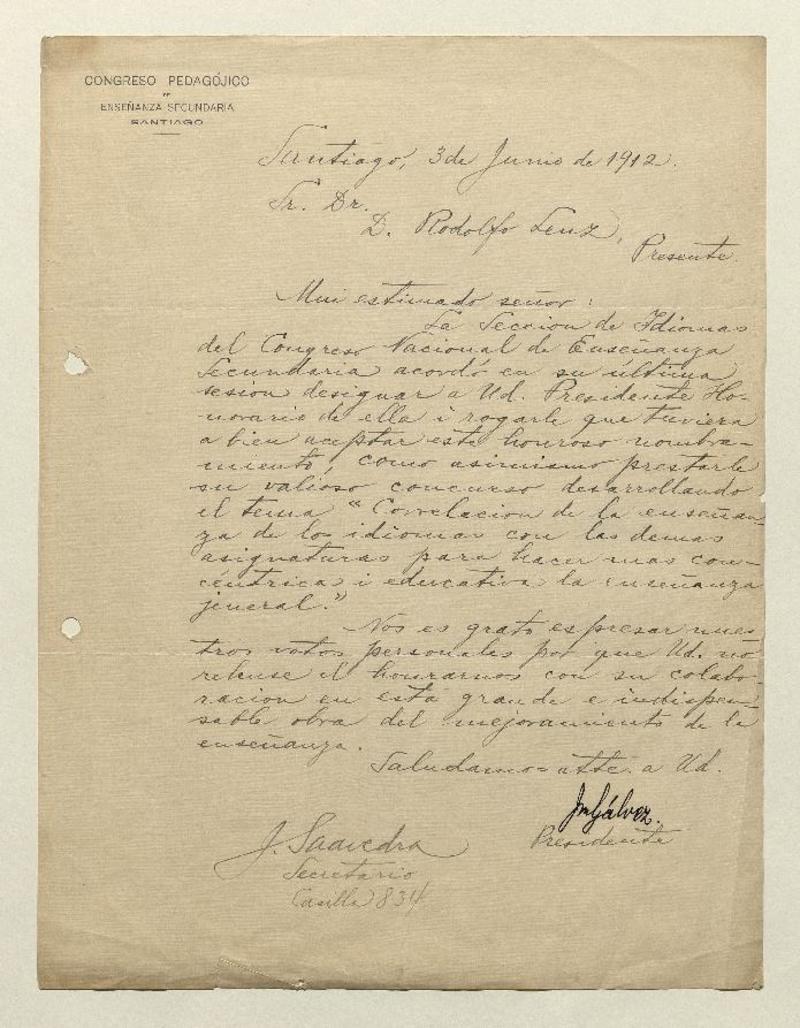 CONGRESO PEDAGÓJICO
DE
ENSEÑANZA SECUNDARIA
SANTIAGO
Santiago, 3 de Junio de 1912.
Sr. Dr.
D. Rodolfo Lenz,
Presente.
Mui estimado señor:
La Seccion de Idiomas
del Congreso Nacional de Enseñanza
Secundaria acordó en su última
sesion designar a Ud. Presidente Ho-
norario de ella i rogarle que tuviera
a bien aceptar este honroso nombra-
miento, como asimismo prestarle
su valioso concurso desarrollando
el tema "Correlacion de la enseñan-
za de los idiomas con las demas
asignaturas para hacer mas con-
céntrica i educativa la enseñanza
jeneral."
Nos es grato espresar nues-
tros votos personales por que Ud. no
rehuse el honrarnos con su colabo-
racion en esta grande e indispen-
sable obra del mejoramiento de la
enseñanza.
Saludamos atte. a Ud.
JmGálvez.
Presidente
J. Saavedra
Secretario
Casilla 834